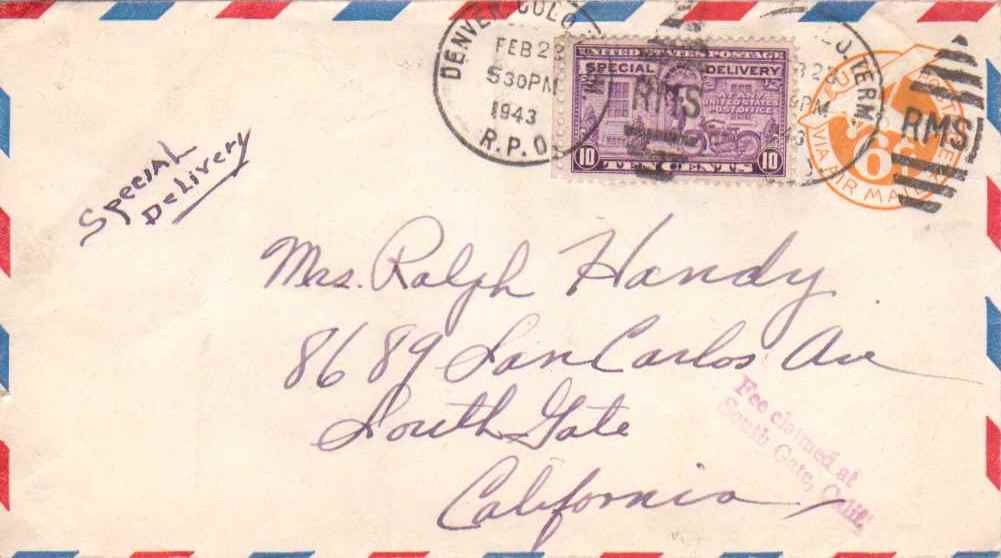 DENVER COLO
FEB 2
530PM
1943
R.P.O.
UNITED STATES POSTAGE
SPECIAL DELIVERY
AT ANY
UNITED STATES
POST OFFICE
10 TEN CENTS 10
RMS
TERM
RMS
VIA AIR MAIL
6¢
Special
Delivery
Mrs. Ralph Handy
8689 San Carlos Ave
South Gate
California
Fee claimed at
South Gate, Calif.